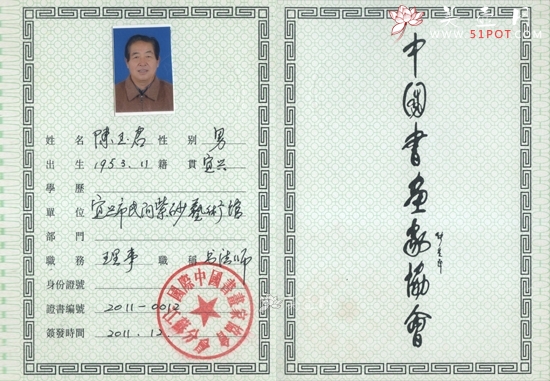 WWW.51POT.COM
姓名 陳玉君 性別 男
出生 1953.11 籍貫 宜兴
學歷
單位 宜兴市民间紫砂藝術馆
部門
職務 理事 職稱 书法师
身份證號
證書編號 2011-0012
簽發時間 2011.12.
國際中國書畫家協會
江蘇分會
中國書画家協會